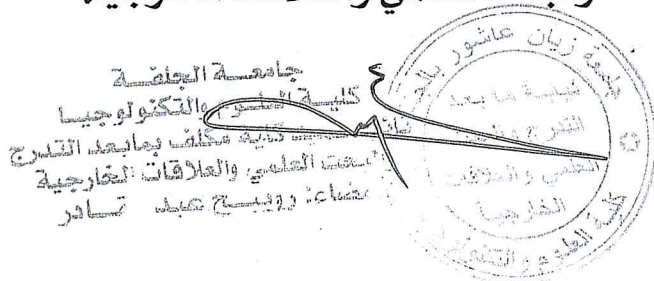 والعلاقات الخارجية
جامعة الجلفة
كلية العلوم والتكنولوجيا
نائب عميد كلية مكلف بمابعد التدرج
البحث العلمي والعلاقات الخارجية
إمضاء: روبيح عبد القادر
جامعة زيان عاشور
نيابة ما بعد
التدرج والبحث
العلمي والعلاقات
الخارجية
كلية العلوم والتكنولوجيا